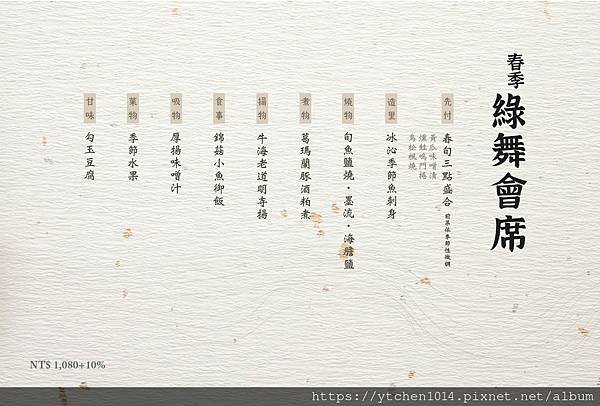 春季
綠舞會席
先付
春旬三點盛合 前菜依季節性微調
黃瓜味噌漬
燻鮭鳴門捲
鳥松楓燒
造里
冰沁季節魚刺身
燒物
旬魚鹽燒・墨流・海膽鹽
煮物
葛瑪蘭豚酒粕煮
揚物
牛海老道明寺揚
食事
錦菇小魚御飯
吸物
厚揚味噌汁
菓物
季節水果
甘味
勾玉豆腐
NT$ 1,080+10%
https://ytchen1014.pixnet.net/album